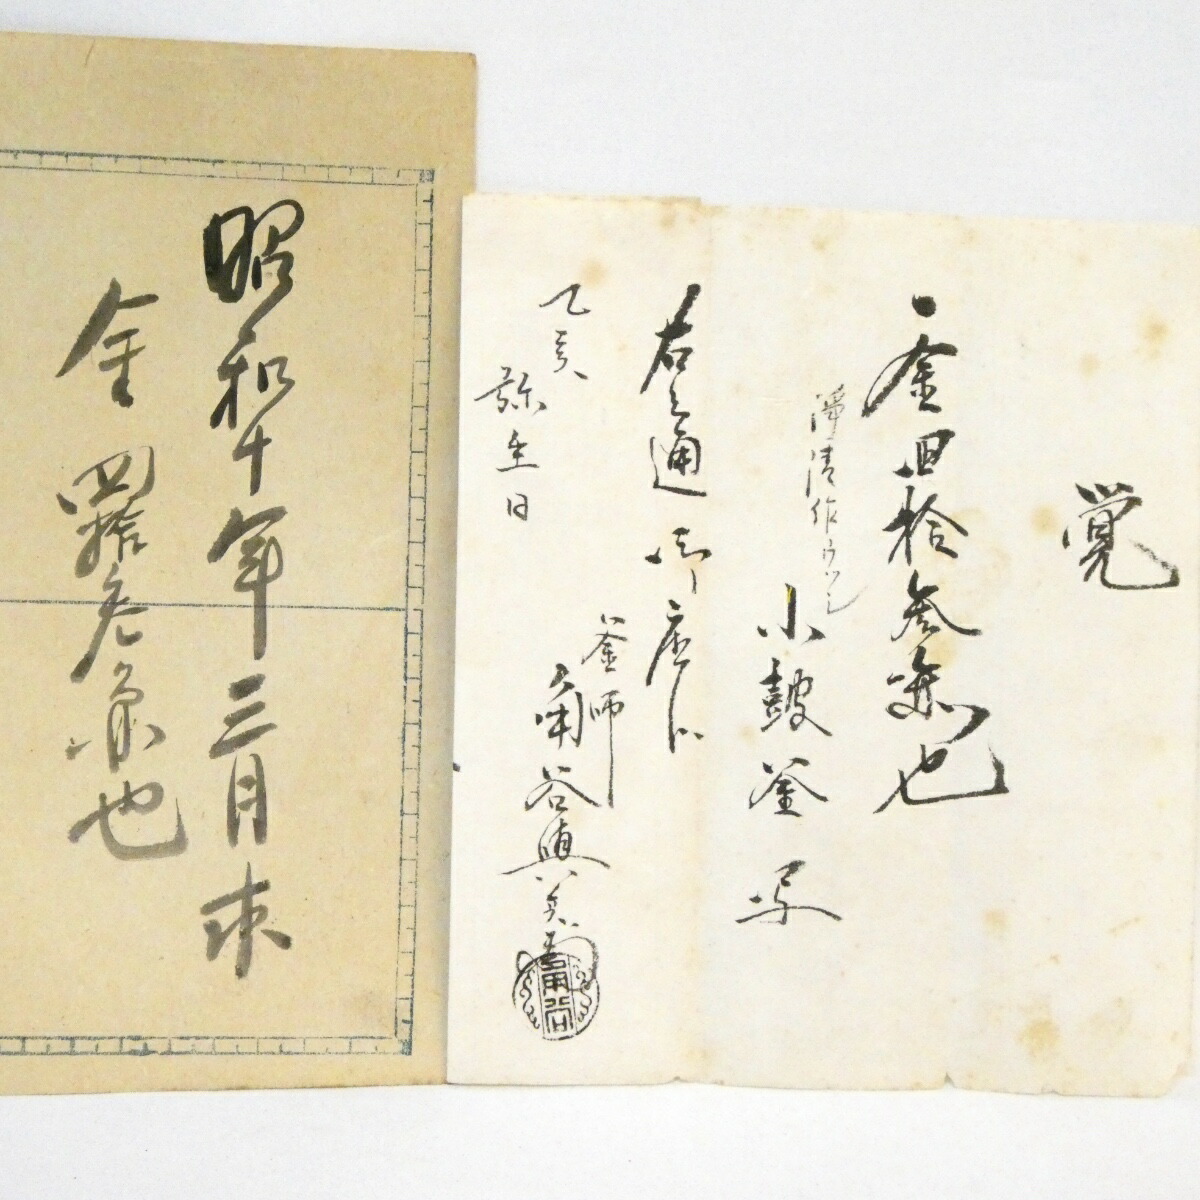 覚
一金四拾参円也
浄清作
小鼓釜写
右之通御座候
乙亥
弥生日
釜師
角谷與兵衛
角谷
昭和十年三月末
金四拾参円也